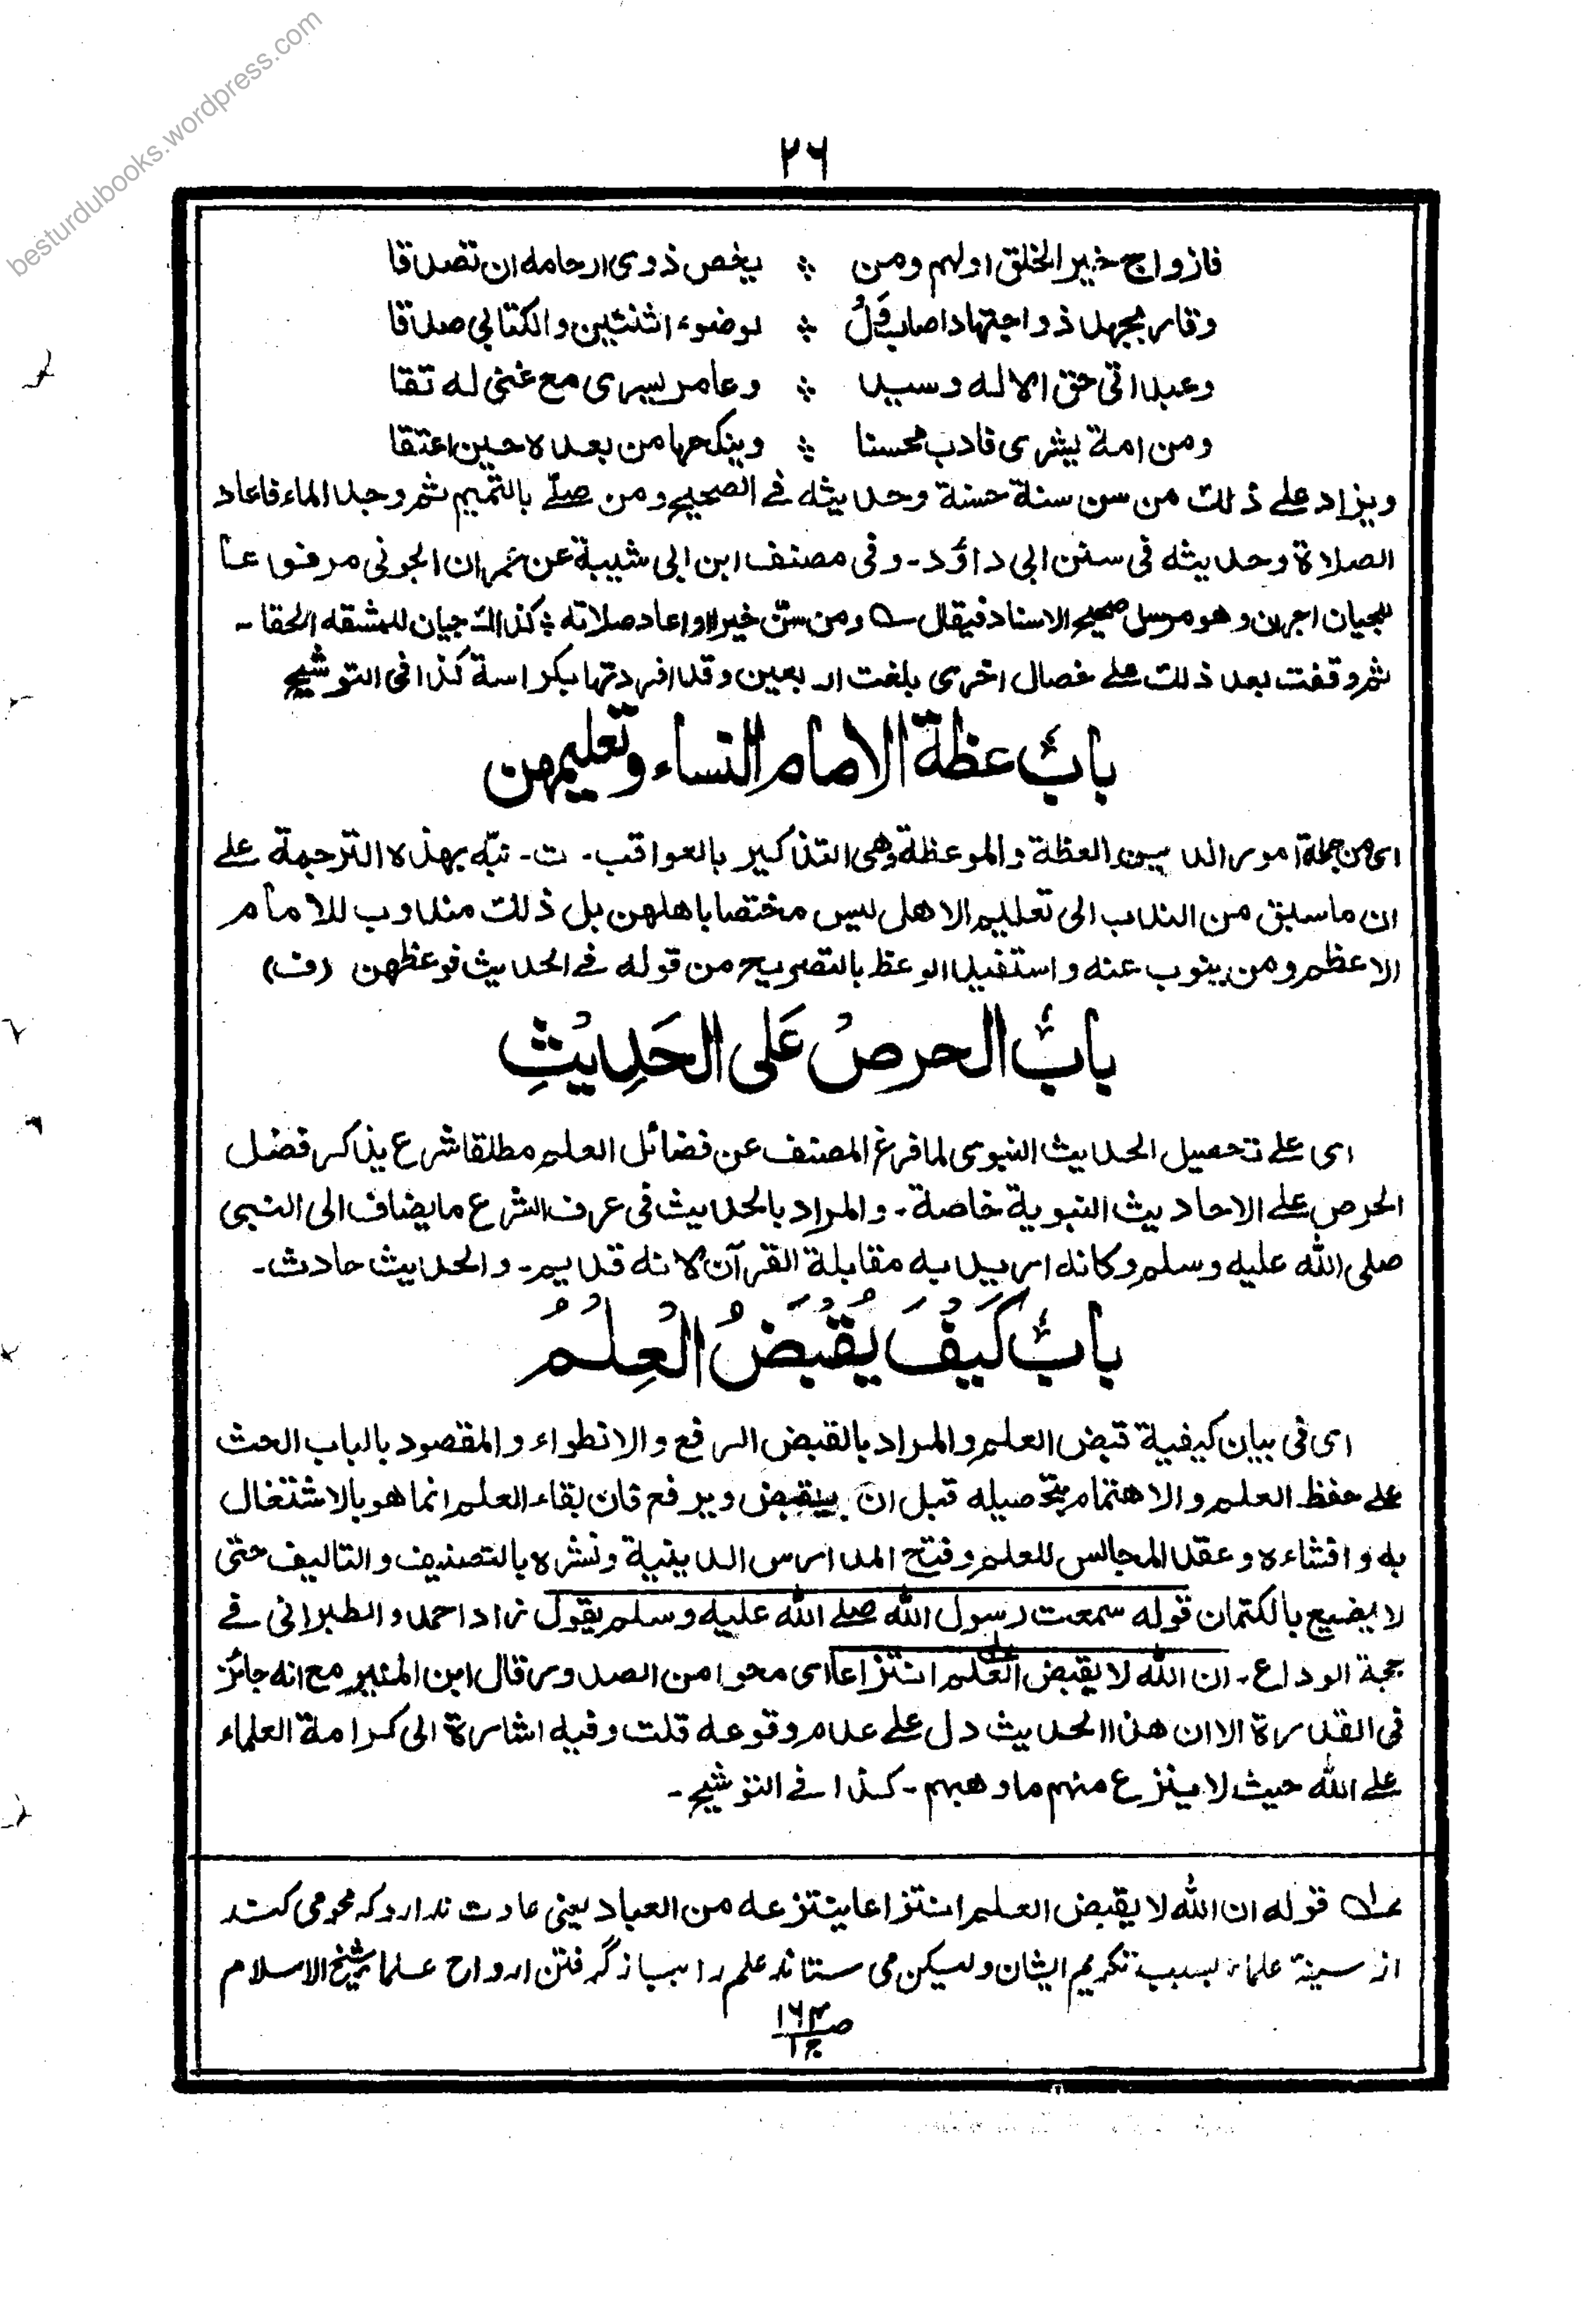 besturdubooks.wordpress.com
۲۶
فازواج خير الخلق اولهم ومن ؞ يخص ذوى ارحامه ان تصدقا
وقار بجهد ذو اجتهاد اصاب قل ؞ لوضوء اثنتين والكتابي صدقا
وعبد اتى حق الاله وسيد ؞ وعامر ليسرى مع غنى له تقا
ومن امة يشرى فادب محسنا ؞ وينكحها من بعده حين اعتقا
ويزاد على ذلك من سن سنة حسنة وحديثه فے الصحيح ومن صلّے بالتميم ثم وجد الماء فاعاد
الصلاة وحديثه فى سنن ابى داؤد - وفى مصنف ابن ابى شيبة عن عمران الجونى مرفوعا
للجبان اجران وهو مرسل صحيح الاسناد فيقال ؎ ومن سنّ خيرا او اعاد صلاته ؞ كذاك جبان للمشقه الحقا -
ثم وقفت بعد ذلك على خصال اخرى بلغت اربعين وقد افردتها بكراسة كذا فى التوشيح
بابُ عظة الامام النساء وتعليمهن
اى من جملة امور الدين العظة والموعظة وهى التذكير بالعواقب - ت - نبّه بهذه الترجمة على
ان ما سبق من الندب الى تعليم الاهل ليس مختصا باهلهن بل ذلك مندوب للامام
الاعظم ومن ينوب عنه واستفيد الوعظ بالتصريح من قوله فے الحديث فوعظهن (ف)
بابُ الحرصُ عَلى الحَدِيْثِ
اى على تحصيل الحديث النبوى لما فرغ المصنف عن فضائل العلم مطلقا شرع يذكر فضل
الحرص على الاحاديث النبوية خاصة - والمراد بالحديث فى عرف الشرع ما يضاف الى النبى
صلى الله عليه وسلم وكانه اريد به مقابلة القرآن لانه قديم - والحديث حادث -
بابُ كَيْفَ يُقْبَضُ الْعِلْمُ
اى فى بيان كيفية قبض العلم والمراد بالقبض الرفع والانطواء والمقصود بالباب الحث
على حفظ العلم والاهتمام بتحصيله قبل ان يقبض ويرفع فان بقاء العلم انما هو بالاشتغال
به وافشاءه وعقد المجالس للعلم وفتح المدارس الدينية ونشره بالتصنيف والتاليف حتى
لا يضيع بالكتمان قوله سمعت رسول الله صلے الله عليه وسلم يقول زاد احمد والطبرانى فے
حجة الوداع - ان الله لا يقبض العلم انتزاعا اى محوا من الصدور قال ابن المنير مع انه جائز
فى القدرة الا ان هذا الحديث دل على عدم وقوعه قلت وفيه اشارة الى كرامة العلماء
على الله حيث لا ينزع منهم ما وهبهم - كذا فے التوشيح -
؎ قوله ان الله لا يقبض العلم انتزاعا ينتزعه من العباد یعنی عادت ندارد که محو می کند
از سینۂ علماء بسبب تکریم ایشان ولیکن می ستاند علم را بباز گرفتن ارواح علما شیخ الاسلام
ص ۱۶۴
ج ۱